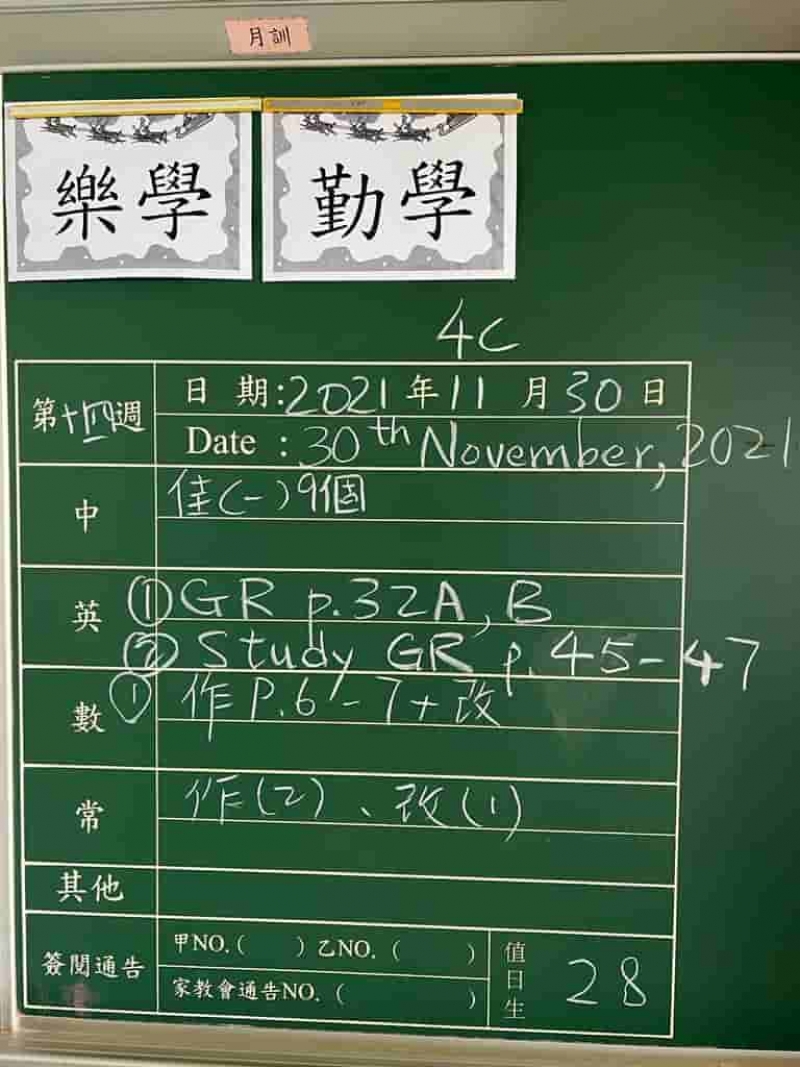 月訓
樂學 勤學
4C
第十四週
日 期:2021年11月30日
Date :30th November, 2021
中
佳(一)9個
英
①GR p.32A, B
②Study GR p.45-47
數
①作P.6-7+改
常
作(2)、改(1)
其他
簽閱通告
甲NO.( )乙NO.( )
家教會通告NO.( )
值日生
28